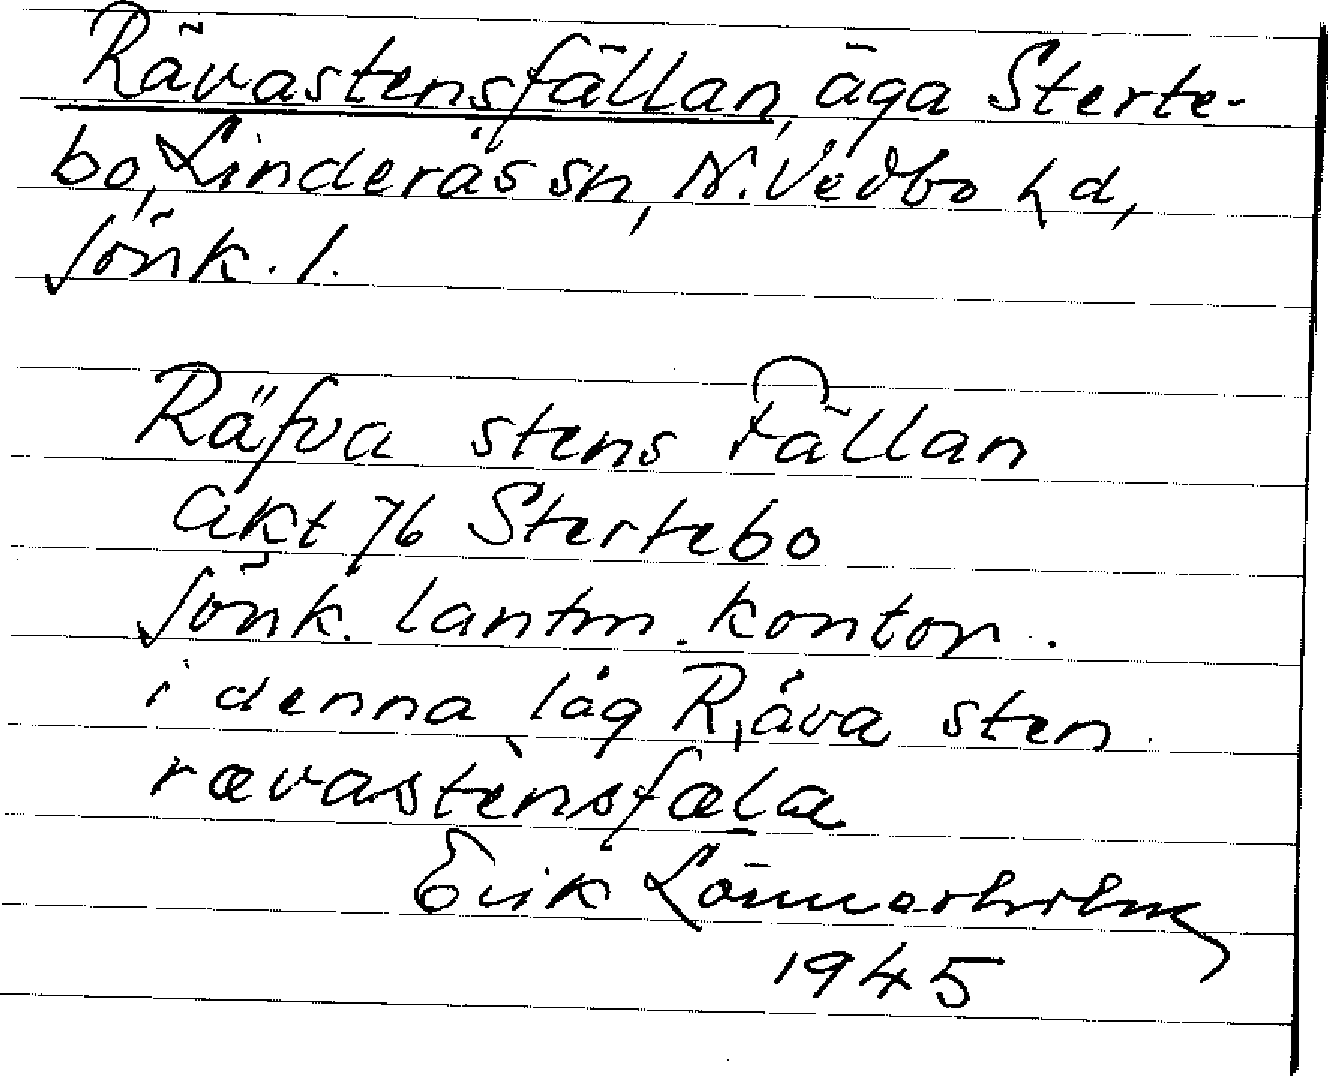 Rävastensfällan, äga Sterte-
bo, Linderås sn, N. Vedbo hd,
Jönk. l.
Räfva stens Fällan
akt 76 Stertebo
Jönk. lantm. kontor.
i denna låg Råva sten
rævastènsfæla
Erik Lönnerholm
1945